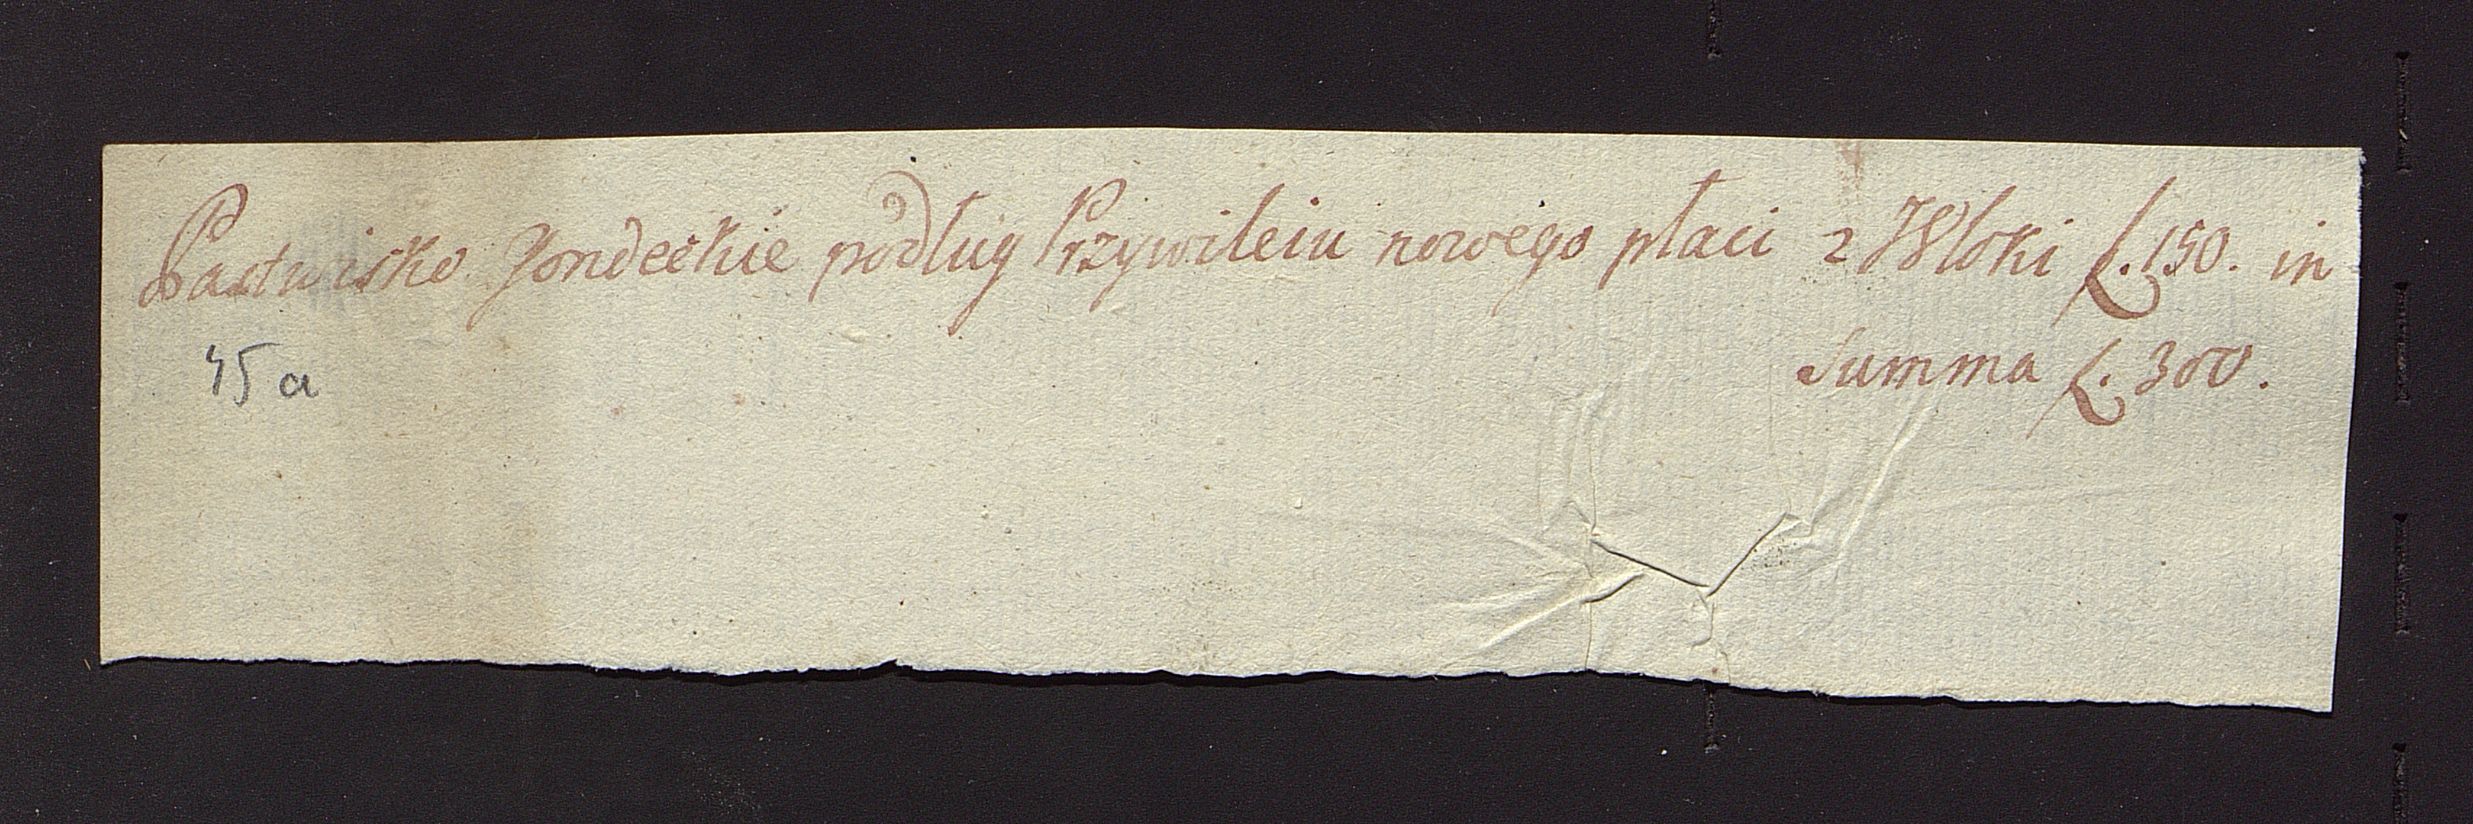 Pastwisko Jondeckie podług Przywileiu nowego płaci z Włoki f. 150. in
Summa f. 300.
45 a